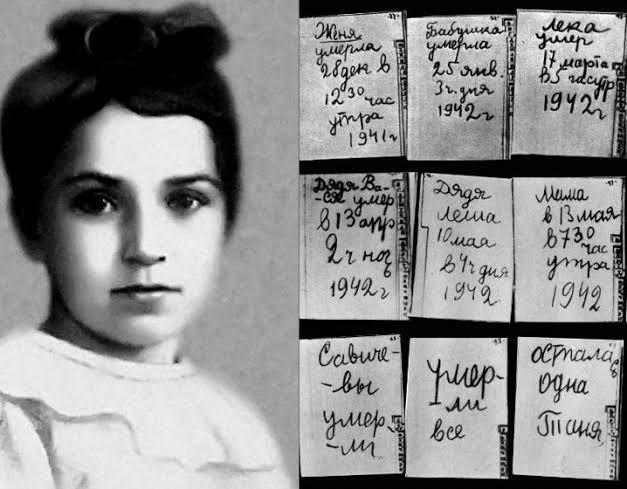 Женя
умерла
28 дек в
12 30 час
утра
1941 г
Бабушка
умерла
25 янв.
3 ч. дня
1942 г
Лека
умер
17 марта
в 5 час утр
1942 г
Дядя Ва-
-ся умер
в 13 апр
2 ч ночь
1942 г
Дядя
Леша
10 мая
в 4 ч дня
1942
Мама
в 13 мая
в 7 30
час
утра
1942
Савиче-
-вы
умер-
-ли
умер-
ли
все
осталась
одна
Таня